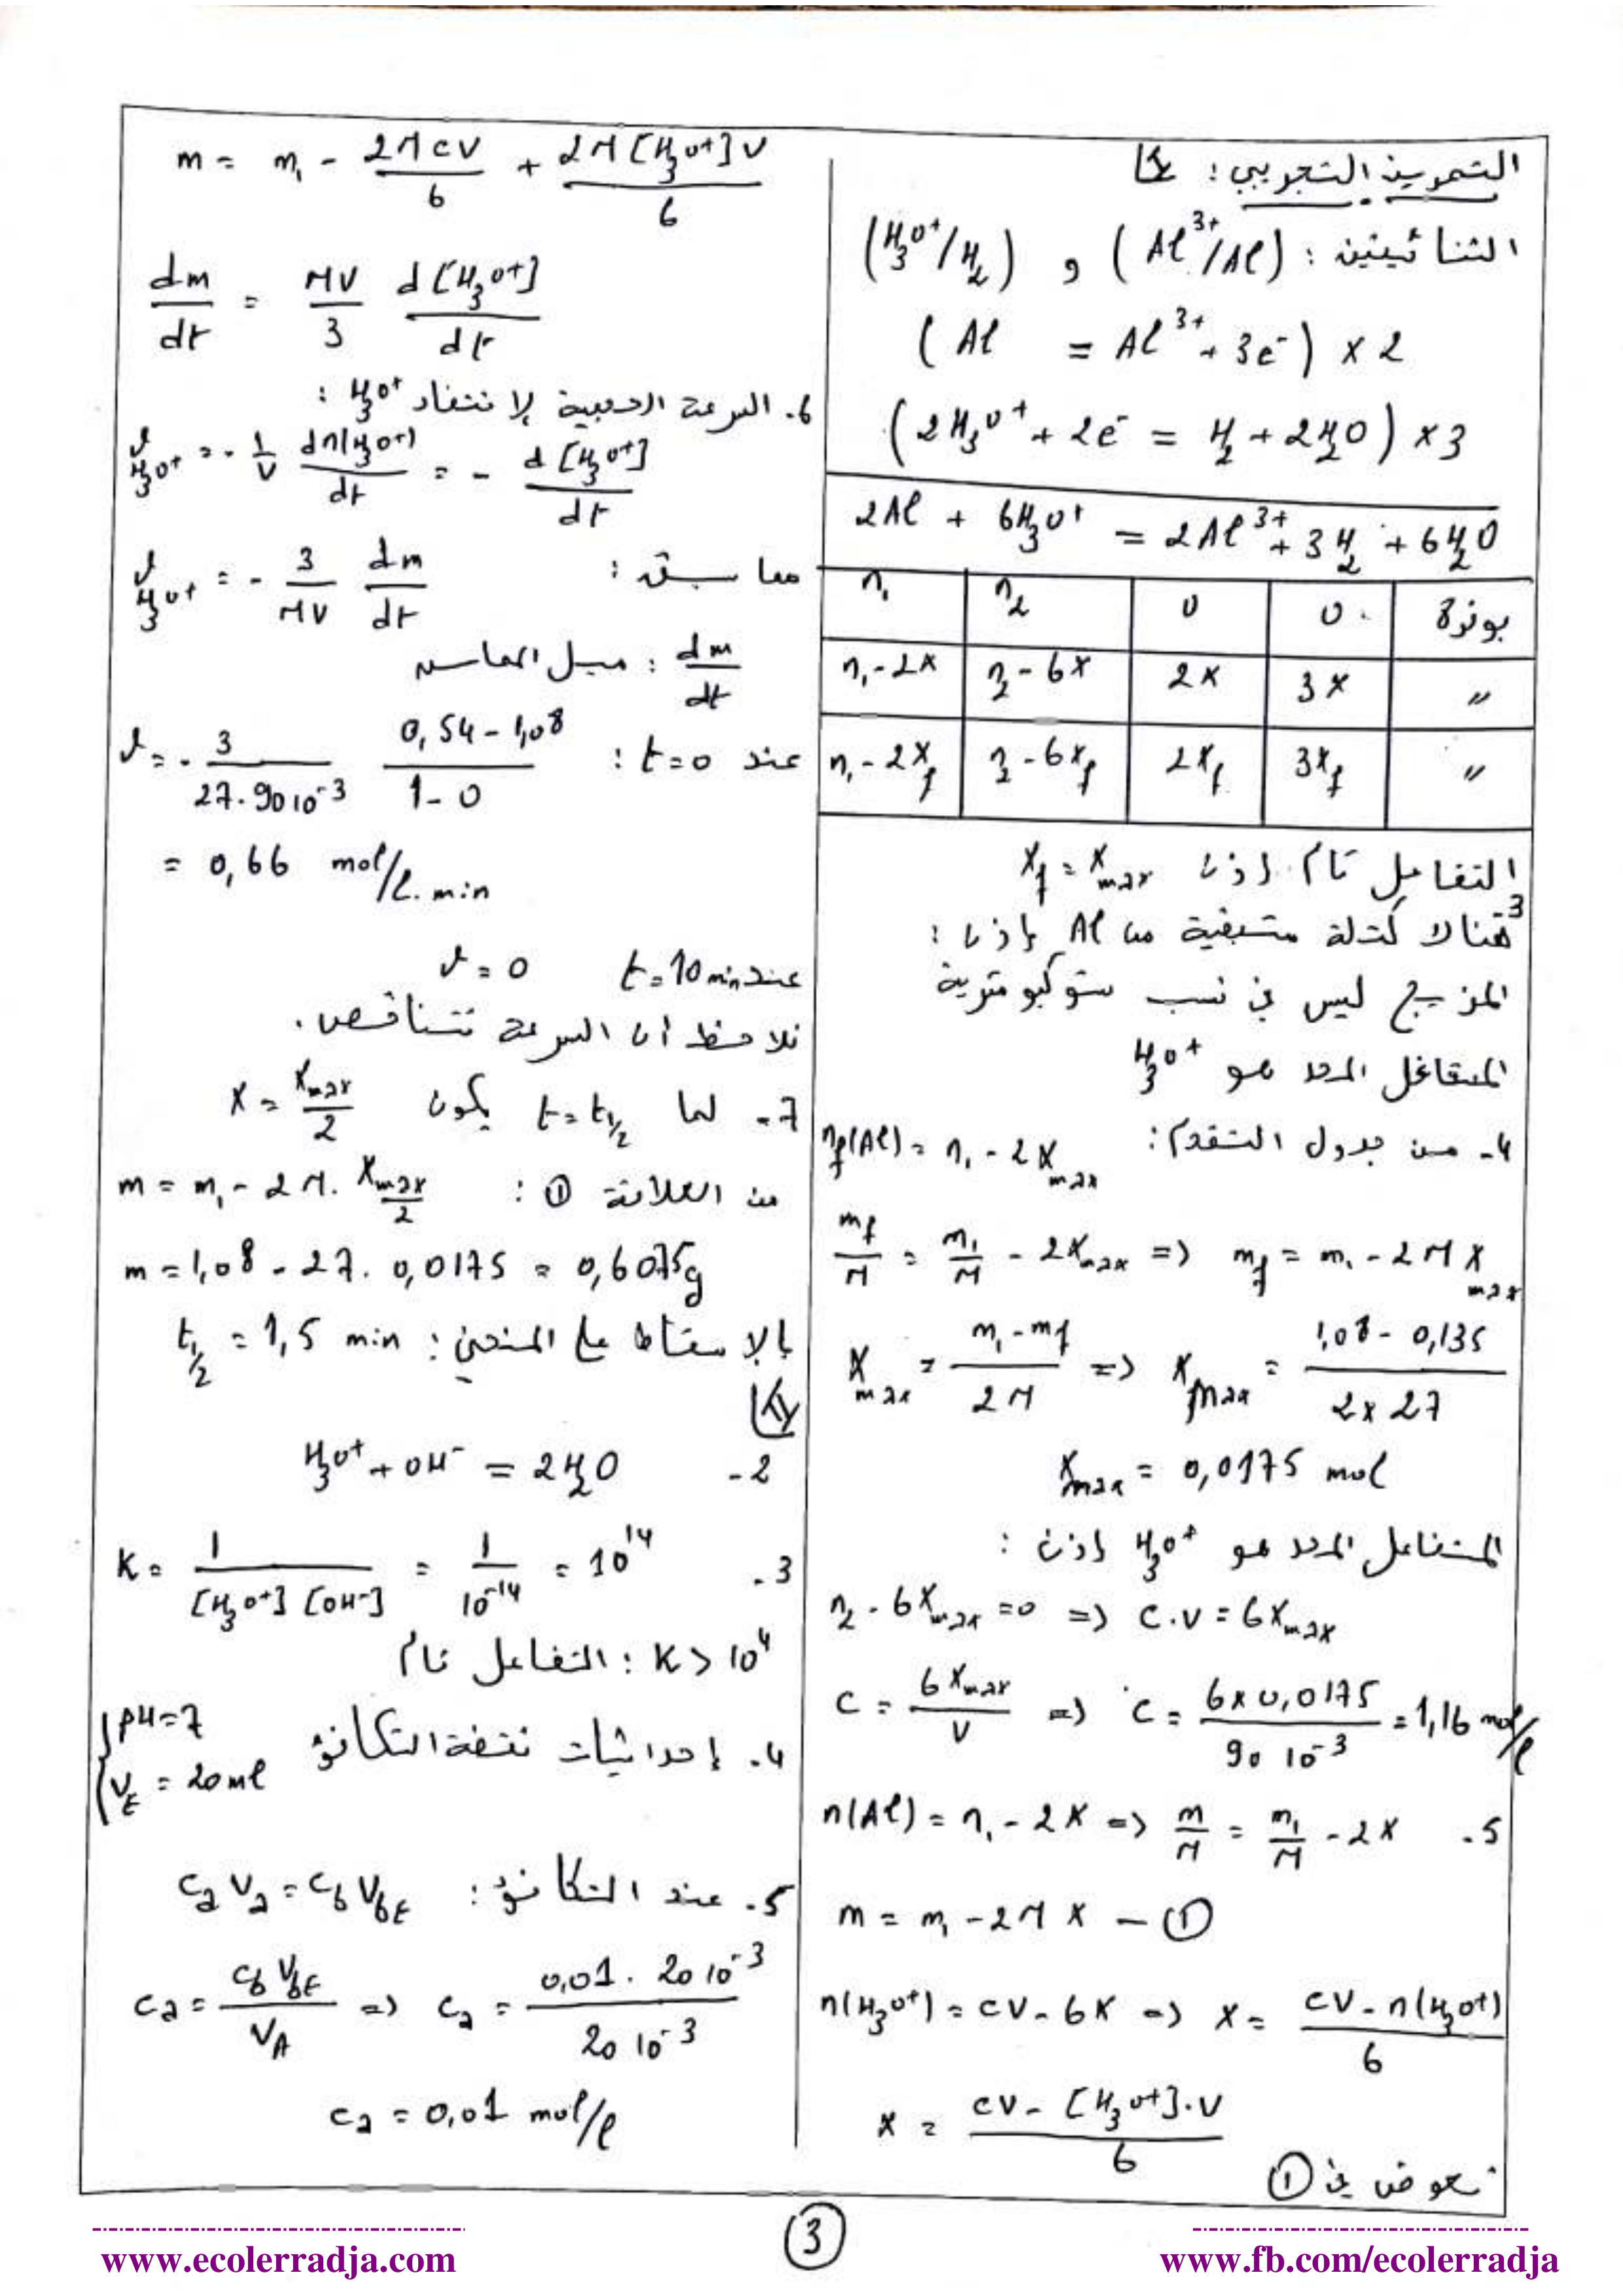 التمرين التجريبي : I
الثنائيتين : (Al³⁺/Al) و (H₃O⁺/H₂)
(Al = Al³⁺ + 3e⁻) × 2
(2H₃O⁺ + 2e⁻ = H₂ + 2H₂O) × 3
2Al + 6H₃O⁺ = 2Al³⁺ + 3H₂ + 6H₂O
n₁ n₂ 0 0 بوفرة
n₁ - 2x n₂ - 6x 2x 3x "
n₁ - 2x_f n₂ - 6x_f 2x_f 3x_f "
التفاعل تام إذن x_f = x_max
3 هناك كتلة متبقية من Al إذن :
المزيج ليس في نسب ستوكيومترية
المتفاعل المحد هو H₃O⁺
4- من جدول التقدم : n_f(Al) = n₁ - 2x_max
m_f/M = m₁/M - 2x_max => m_f = m₁ - 2M x_max
x_max = (m₁ - m_f)/2M => x_max = (1,08 - 0,135)/(2 x 27)
x_max = 0,0175 mol
المتفاعل المحد هو H₃O⁺ إذن :
n₂ - 6x_max = 0 => c.v = 6x_max
c = 6x_max/V => c = (6 x 0,0175)/(90 10⁻³) = 1,16 mol/l
5. n(Al) = n₁ - 2x => m/M = m₁/M - 2x
m = m₁ - 2M x — ①
n(H₃O⁺) = cv - 6x => x = (cv - n(H₃O⁺))/6
x = (cv - [H₃O⁺].V)/6
نعوض في ①
m = m₁ - 2Mcv/6 + 2M[H₃O⁺]V/6
dm/dt = MV/3 d[H₃O⁺]/dt
6. السرعة الحجمية لإختفاء H₃O⁺ :
v_H₃O⁺ = - 1/V dn(H₃O⁺)/dt = - d[H₃O⁺]/dt
مما سبق : v_H₃O⁺ = - 3/MV dm/dt
dm/dt : ميل المماس
عند t=0 : v = - 3/(27.90 10⁻³) (0,54 - 1,08)/(1 - 0)
= 0,66 mol/l.min
عند t = 10 min v = 0
نلاحظ أن السرعة تتناقص.
7- لما t = t½ يكون x = x_max/2
من العلاقة ① : m = m₁ - 2M. x_max/2
m = 1,08 - 27. 0,0175 = 0,6075g
بالإسقاط على المنحنى : t½ = 1,5 min
II
2- H₃O⁺ + OH⁻ = 2H₂O
3. K = 1/([H₃O⁺][OH⁻]) = 1/10⁻¹⁴ = 10¹⁴
K > 10⁴ : التفاعل تام
4. إحداثيات نقطة التكافؤ {pH = 7
V_E = 20 ml
5. عند التكافؤ : c_a v_a = c_b V_bE
c_a = c_b V_bE/V_A => c_a = (0,01 . 20 10⁻³)/(20 10⁻³)
c_a = 0,01 mol/l
3
www.ecolerradja.com
www.fb.com/ecolerradja